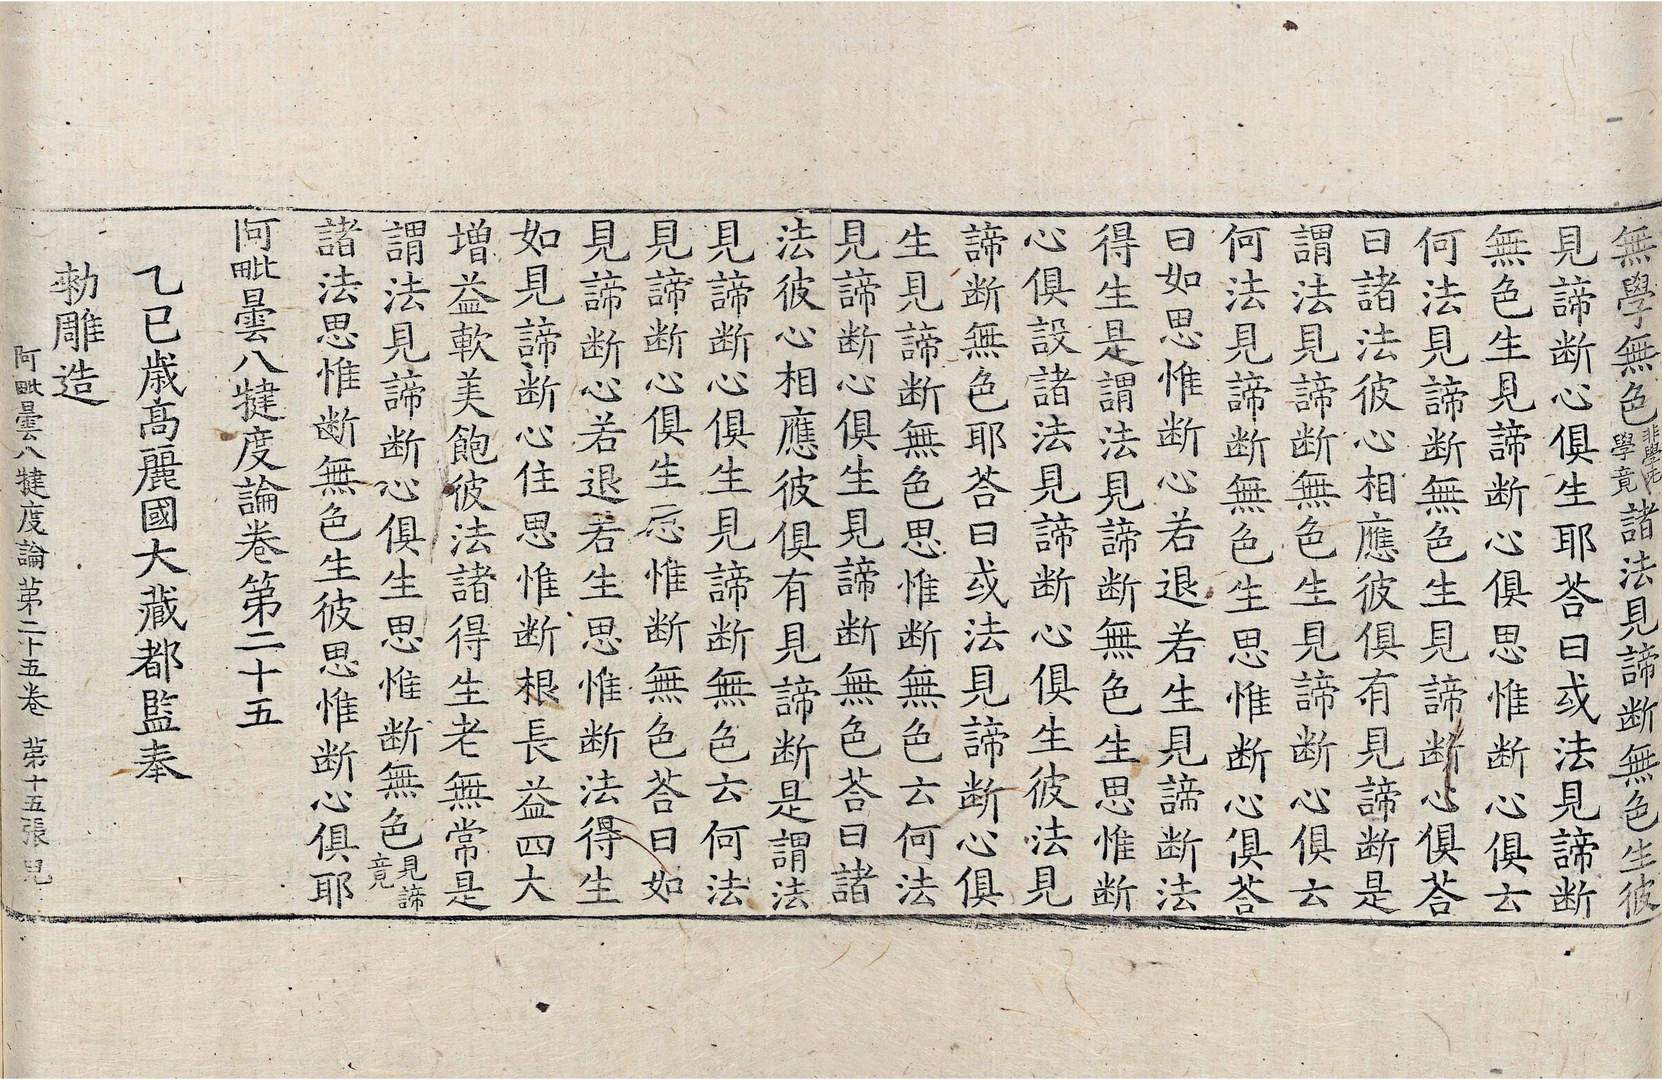 無學無色非學非學竟諸法見諦断無色生彼
見諦断心俱生耶荅曰或法見諦断
無色生見諦断心俱思惟断心俱云
何法見諦断無色生見諦断心俱荅
曰諸法彼心相應彼俱有見諦断是
謂法見諦断無色生見諦断心俱云
何法見諦断無色生思惟断心俱荅
曰如思惟断心若退若生見諦断法
得生是謂法見諦断無色生思惟断
心俱設諸法見諦断心俱生彼法見
諦断無色耶荅曰或法見諦断心俱
生見諦断無色思惟断無色云何法
見諦断心俱生見諦断無色荅曰諸
法彼心相應彼俱有見諦断是謂法
見諦断心俱生見諦断無色云何法
見諦断心俱生思惟断無色荅曰如
見諦断心若退若生思惟断法得生
如見諦断心住思惟断根長益四大
增益軟美飽彼法諸得生老無常是
謂法見諦断心俱生思惟断無色見諦竟
諸法思惟断無色生彼思惟断心俱耶
阿毗曇八犍度論卷第二十五
乙巳歲高麗國大藏都監奉
勑雕造
阿毗曇八犍度論第二十五卷 第十五張 皃